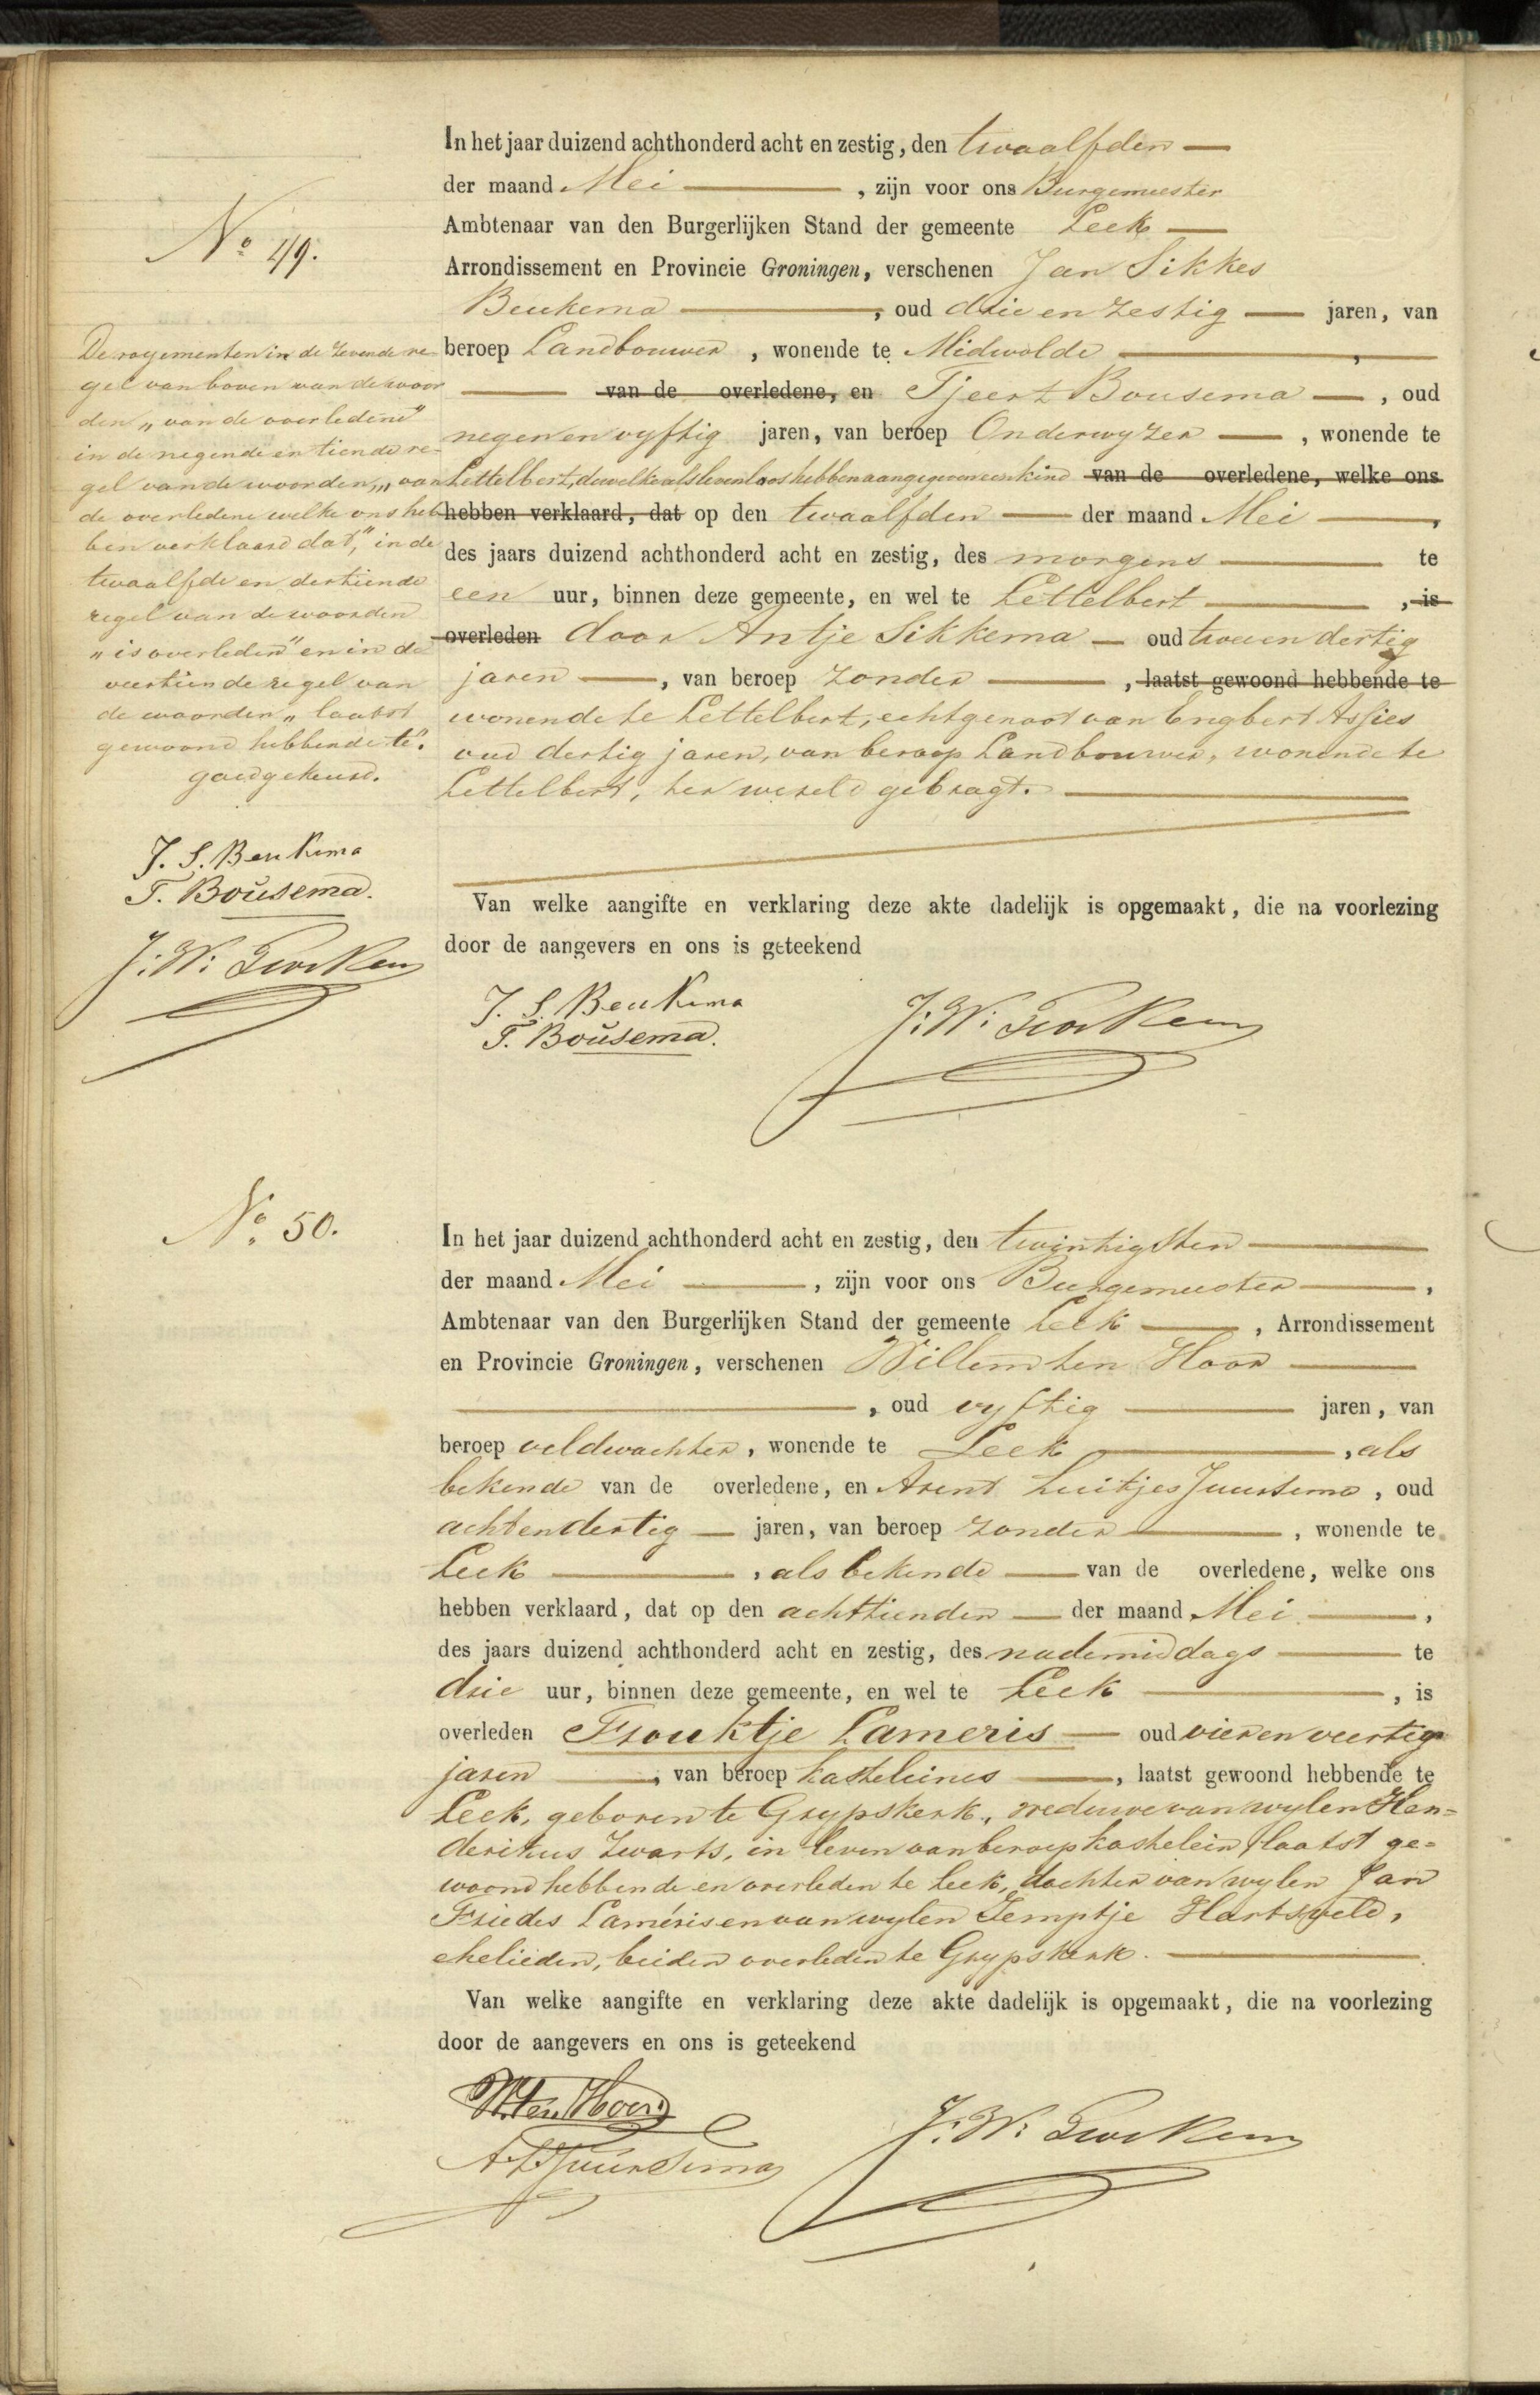 No 49.
In het jaar duizend achthonderd acht en zestig, den twaalfden
der maand Mei , zijn voor ons Burgemeester
Ambtenaar van den Burgerlijken Stand der gemeente Leek
Arrondissement en Provincie Groningen, verschenen Jan Sikkes
Beukema , oud drie en zestig jaren, van
beroep Landbouwer , wonende te Midwolde ,
van de overledene, en Tjeert Bousema , oud
negen en vyftig jaren, van beroep Onderwyzer , wonende te
Lettelbert, dewelke als levenloos hebben aangegeven een kind van de overledene, welke ons
hebben verklaard, dat op den twaalfden der maand Mei ,
des jaars duizend achthonderd acht en zestig, des morgens te
een uur, binnen deze gemeente, en wel te Lettelbert , is
overleden door Antje Sikkema oud twee en dertig
jaren , van beroep zonder , laatst gewoond hebbende te
wonende te Lettelbert, echtgenoot van Engbert Assies
oud dertig jaren, van beroep Landbouwer, wonende te
Lettelbert, ter wereld gebragt.
Van welke aangifte en verklaring deze akte dadelijk is opgemaakt, die na voorlezing
door de aangevers en ons is geteekend
J. S. Beukema
T. Bousema.
J. W.
De royementen in de zevende re-
gel van boven van de woor
den „van de overledene"
in de negende en tiende re-
gel van de woorden „van
de overledene welke ons heb
ben verklaard dat," in de
twaalfde en dertiende
regel van de woorden
„is overleden" en in de
veertiende regel van
de woorden „laatst
gewoond hebbende te".
goedgekeurd.
J. S. Beukema
T. Bousema.
J. W.
No. 50.
In het jaar duizend achthonderd acht en zestig, den twintigsten
der maand Mei , zijn voor ons Burgemeester ,
Ambtenaar van den Burgerlijken Stand der gemeente Leek , Arrondissement
en Provincie Groningen, verschenen Willem ten Hoor
, oud vyftig jaren, van
beroep veldwachter, wonende te Leek , als
bekende van de overledene, en Arent Luitjes Juursema, oud
achtendertig jaren, van beroep zonder , wonende te
Leek , als bekende van de overledene, welke ons
hebben verklaard, dat op den achttienden der maand Mei ,
des jaars duizend achthonderd acht en zestig, des nademiddags te
drie uur, binnen deze gemeente, en wel te Leek , is
overleden Frouktje Lameris oud vier en veertig
jaren , van beroep kasteleines , laatst gewoond hebbende te
Leek, geboren te Grypskerk, weduwe van wylen Hen=
derikus Zwarts, in leven van beroep kastelein, laatst ge=
woond hebbende en overleden te Leek, dochter van wylen Jan
Friedes Laméris en van wylen Jemptje Hartsveld,
echelieden, beiden overleden te Grypskerk.
Van welke aangifte en verklaring deze akte dadelijk is opgemaakt, die na voorlezing
door de aangevers en ons is geteekend
W. ten Hoor
A L Juursema
J. W.